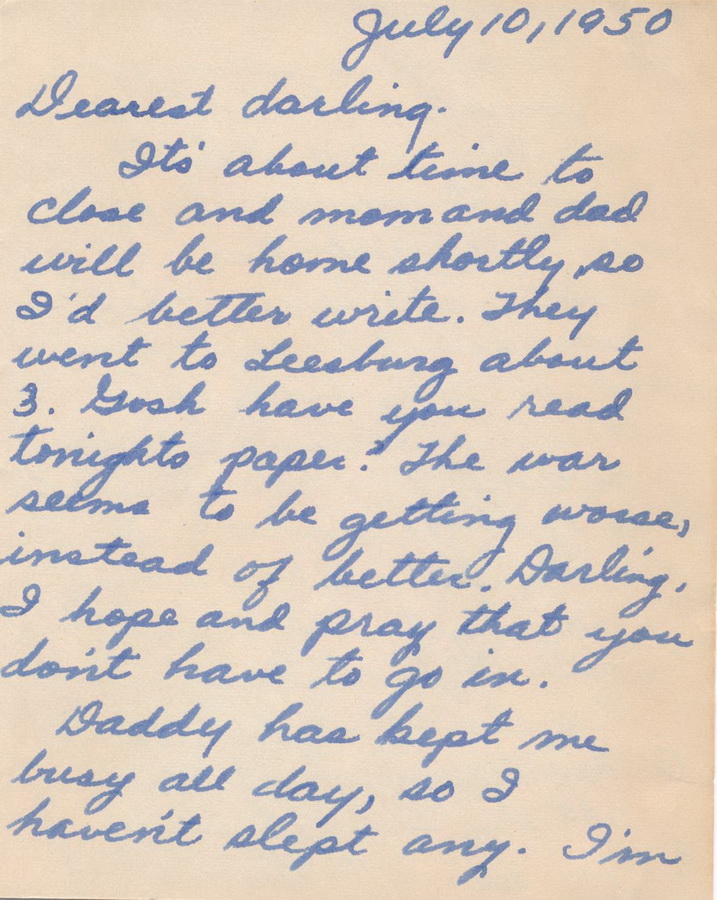 July 10, 1950
Dearest darling.
It's about time to
close and mom and dad
will be home shortly, so
I'd better write. They
went to Leesburg about
3. Gosh have you read
tonights paper? The war
seems to be getting worse,
instead of better. Darling,
I hope and pray that you
don't have to go in.
Daddy has kept me
busy all day, so I
haven't slept any. I'm